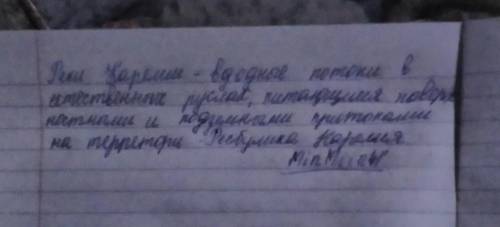 Реки Карелии - вдодное потоки в
естественных руслах, питающимия поверх
ностными и подзумными притоками
на терретори Ресбулика Карелия